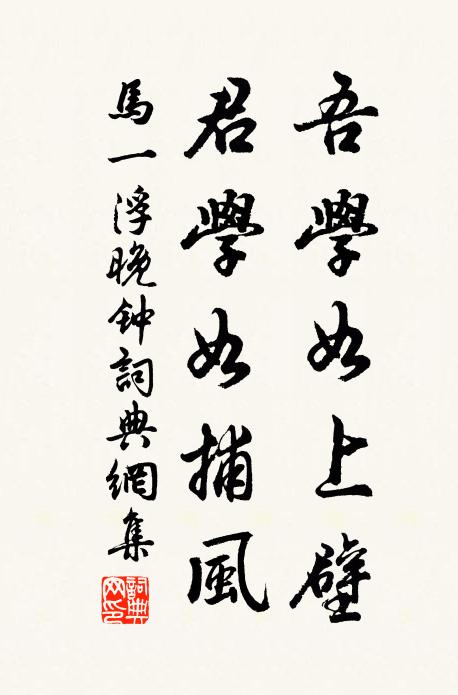 吾學如上壁
君學如捕風
馬一浮晚钟詞典網集
詞典網印